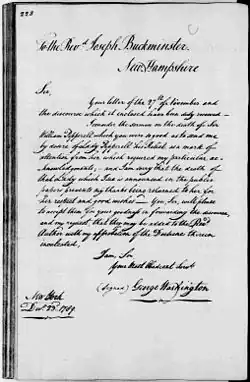 228
To the Rev.d Joseph Buckminster.
New Hampshire
Sir,
Your letter of the 27.th of November and
the discourse which it inclosed have been duly received —
I consider the sermon on the death of Sir
William Pepperell which you were so good as to send me
by desire of Lady Pepperell his Relict as a mark of
attention from her which required my particular ac-
knowledgments; and I am sorry that the death of
that Lady which I see is announced in the public
papers prevents my thanks being returned to her for
her respect and good wishes — You, Sir, will please
to accept them for your goodness in forwarding the sermon,
and my request that they may be added to the Rev.d
Author with my approbation of the Doctrine therein
inculcated,
I am, Sir
Your Most Obedient Serv.t
(signed) George Washington
New York
Dec.r 23.d 1789.